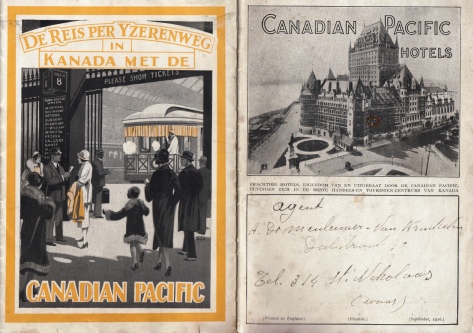 De Reis per Yzerenweg
in
Kanada met de
8
PLEASE SHOW TICKETS
CANADIAN PACIFIC
CANADIAN PACIFIC
HOTELS
PRACHTIGE HOTELS, EIGENDOM VAN EN UITGEBAAT DOOR DE CANADIAN PACIFIC,
BEVINDEN ZICH IN DE MEEST HANDELS-EN TOERISTEN-CENTRUMS VAN KANADA
agent
A. De Meulenaer - Van
Tel. 314 St Nikolaas
(waas)
(Printed in England) (Flemish) (September, 1926.)